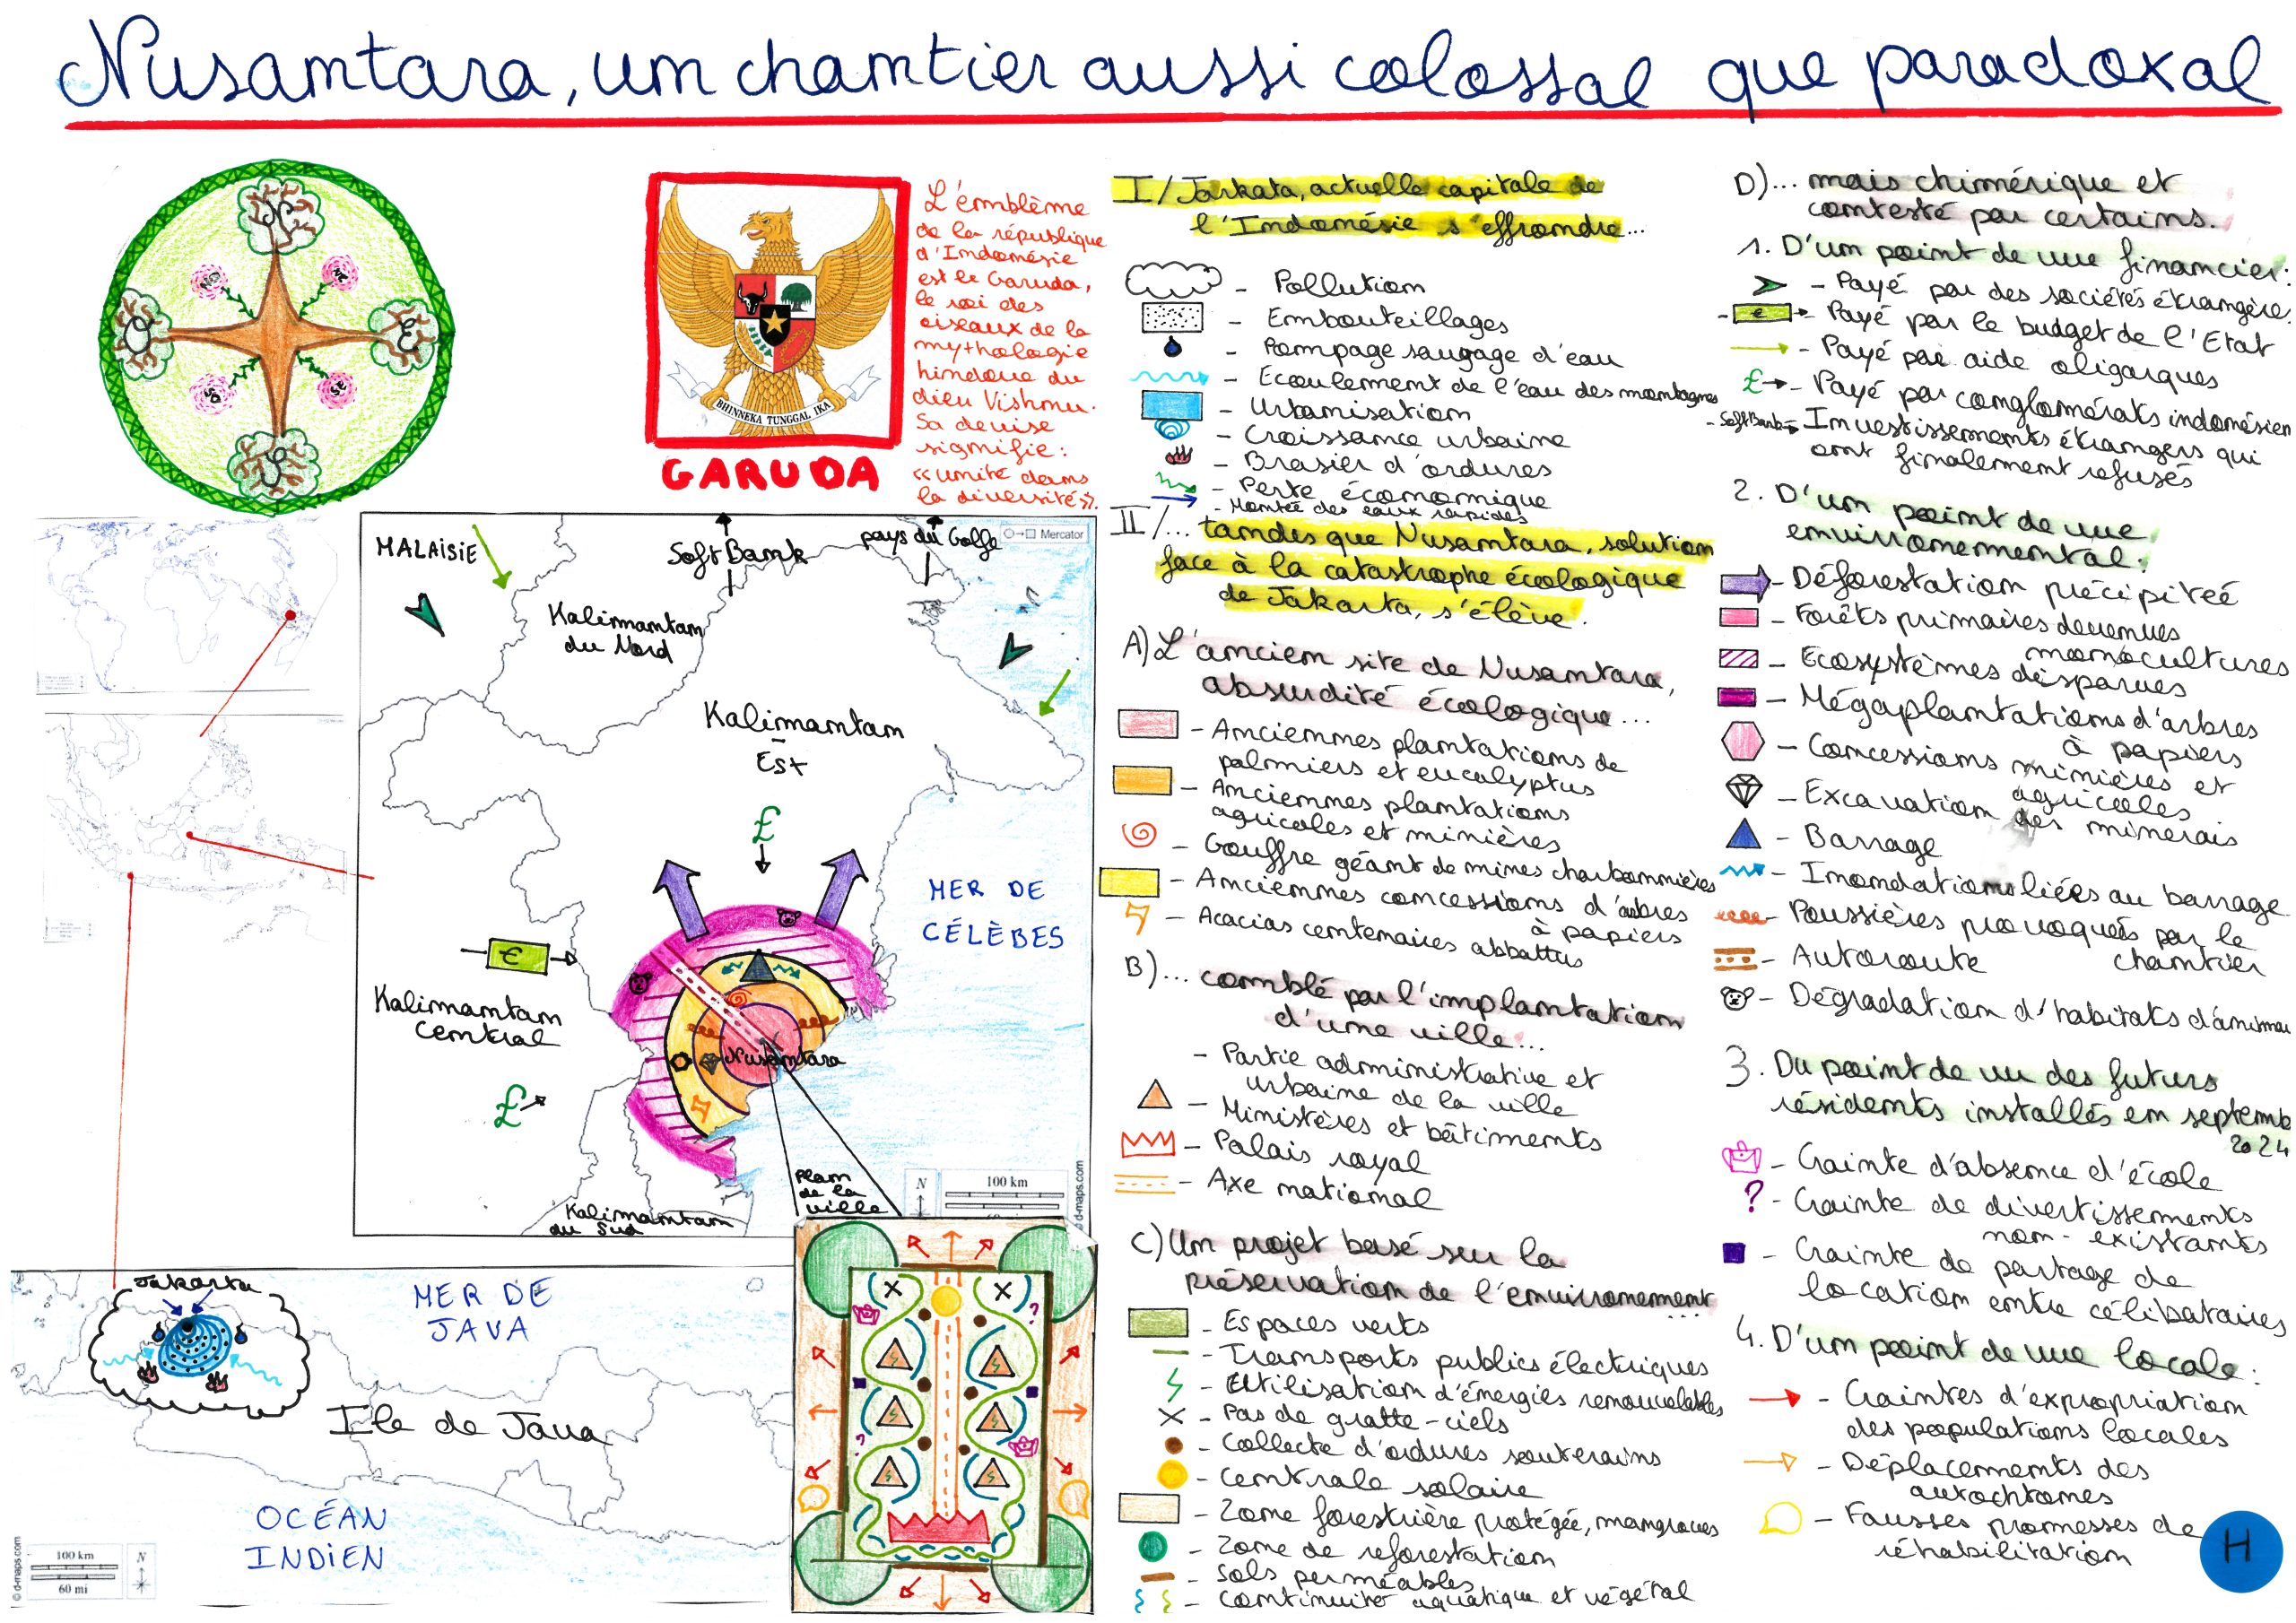 Nusantara, un chantier aussi colossal que paradoxal
N
NO
NE
O
E
SO
SE
S
BHINNEKA TUNGGAL IKA
GARUDA
L'emblème
de la république
d'Indonésie
est le Garuda,
le roi des
oiseaux de la
mythologie
hindoue du
dieu Vishnu.
Sa devise
signifie :
« unité dans
la diversité ».
MALAISIE
SoftBank
pays du Golfe
Mercator
Kalimantan
du Nord
Kalimantan
Est
£
MER DE
CÉLÈBES
€
Kalimantan
central
Nusantara
£
plan
de la
ville
N
100 km
© d-maps.com
Kalimantan
du Sud
Jakarta
MER DE
JAVA
Ile de Java
OCÉAN
INDIEN
100 km
60 mi
N
© d-maps.com
?
?
I/ Jarkata, actuelle capitale de
l'Indonésie s'effrondre...
- Pollution
- Embouteillages
- Pompage sauvage d'eau
- Ecoulement de l'eau des montagnes
- Urbanisation
- Croissance urbaine
- Brasier d'ordures
- Perte économique
- Montée des eaux rapides
II/... tandis que Nusantara, solution
face à la catastrophe écologique
de Jakarta, s'élève.
A) L'ancien site de Nusantara,
absurdité écologique...
- Anciennes plantations de
palmiers et eucalyptus
- Anciennes plantations
agricoles et minières
- Gouffre géant de mines charbonnières
- Anciennes concessions d'arbres
à papiers
- Acacias centenaires abbattus
B)... comblé par l'implantation
d'une ville...
- Partie administrative et
urbaine de la ville
- Ministères et bâtiments
- Palais royal
- Axe national
C) Un projet basé sur la
préservation de l'environnement
...
- Espaces verts
- Transports publics électriques
- Utilisation d'énergies renouvelables
- Pas de gratte-ciels
- Collecte d'ordures souterains
- Centrale solaire
- Zone forestière protégée, mangroves
- Zone de reforestation
- Sols perméables
- Continuité aquatique et végétal
D)... mais chimérique et
contesté par certains.
1. D'un point de vue financier :
- Payé par des sociétés étrangères
- € - Payé par le budget de l'Etat
- Payé par aide oligarques
£ - Payé par conglomérats indonésien
- SoftBank - Investissements étrangers qui
ont finalement refusés
2. D'un point de vue
environnemental :
- Déforestation précipiteé
- Forêts primaires devenues
monocultures
- Ecosystèmes disparues
- Mégaplantations d'arbres
à papiers
- Concessions minières et
agricoles
- Excavation des minerais
- Barrage
- Inondations liées au barrage
- Poussières provoqués par le
chantier
- Autoroute
- Dégradation d'habitats d'animau
3. Du point de vu des futurs
résidents installés en septemb
2024
- Crainte d'absence d'école
? - Crainte de divertissements
non-existants
- Crainte de partage de
location entre célibataires
4. D'un point de vue locale :
- Craintes d'expropriation
des populations locales
- Déplacements des
autochtones
- Fausses promesses de
réhabilitation
H